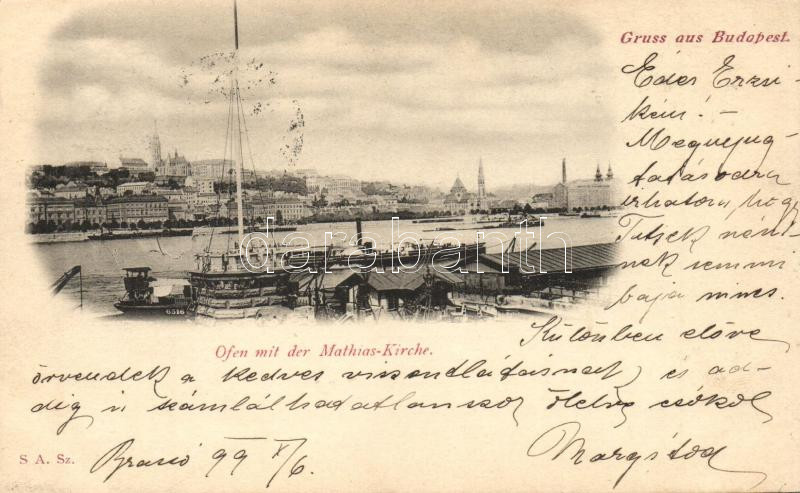 Gruss aus Budapest.
Édes Erzsi-
kém! -
Megnyug-
tatásodra
írhatom, hogy
Tutsek néni-
nek semmi
baja nincs.
Különben előre
örvendek a kedves viszontlátásnak, és ad-
dig is számlálhadatlanszor ölelve csókol
Margitod
Brassó 99 X/6.
Ofen mit der Mathias-Kirche.
S A. Sz.
6516
darabanth